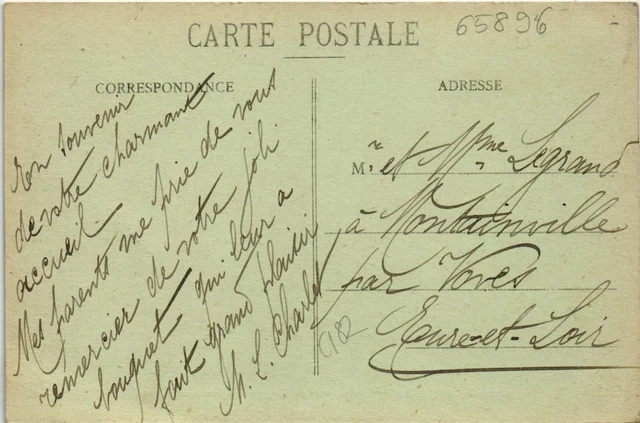 CARTE POSTALE
65896
CORRESPONDANCE
En souvenir
de votre charmant
accueil.
Mes parents me prie de vous
remercier de votre joli
bouquet qui leur a
fait grand plaisir
M. L. Charles
ADRESSE
Mr et Mme Legrand
à Montainville
par Voves
Eure-et-Loir